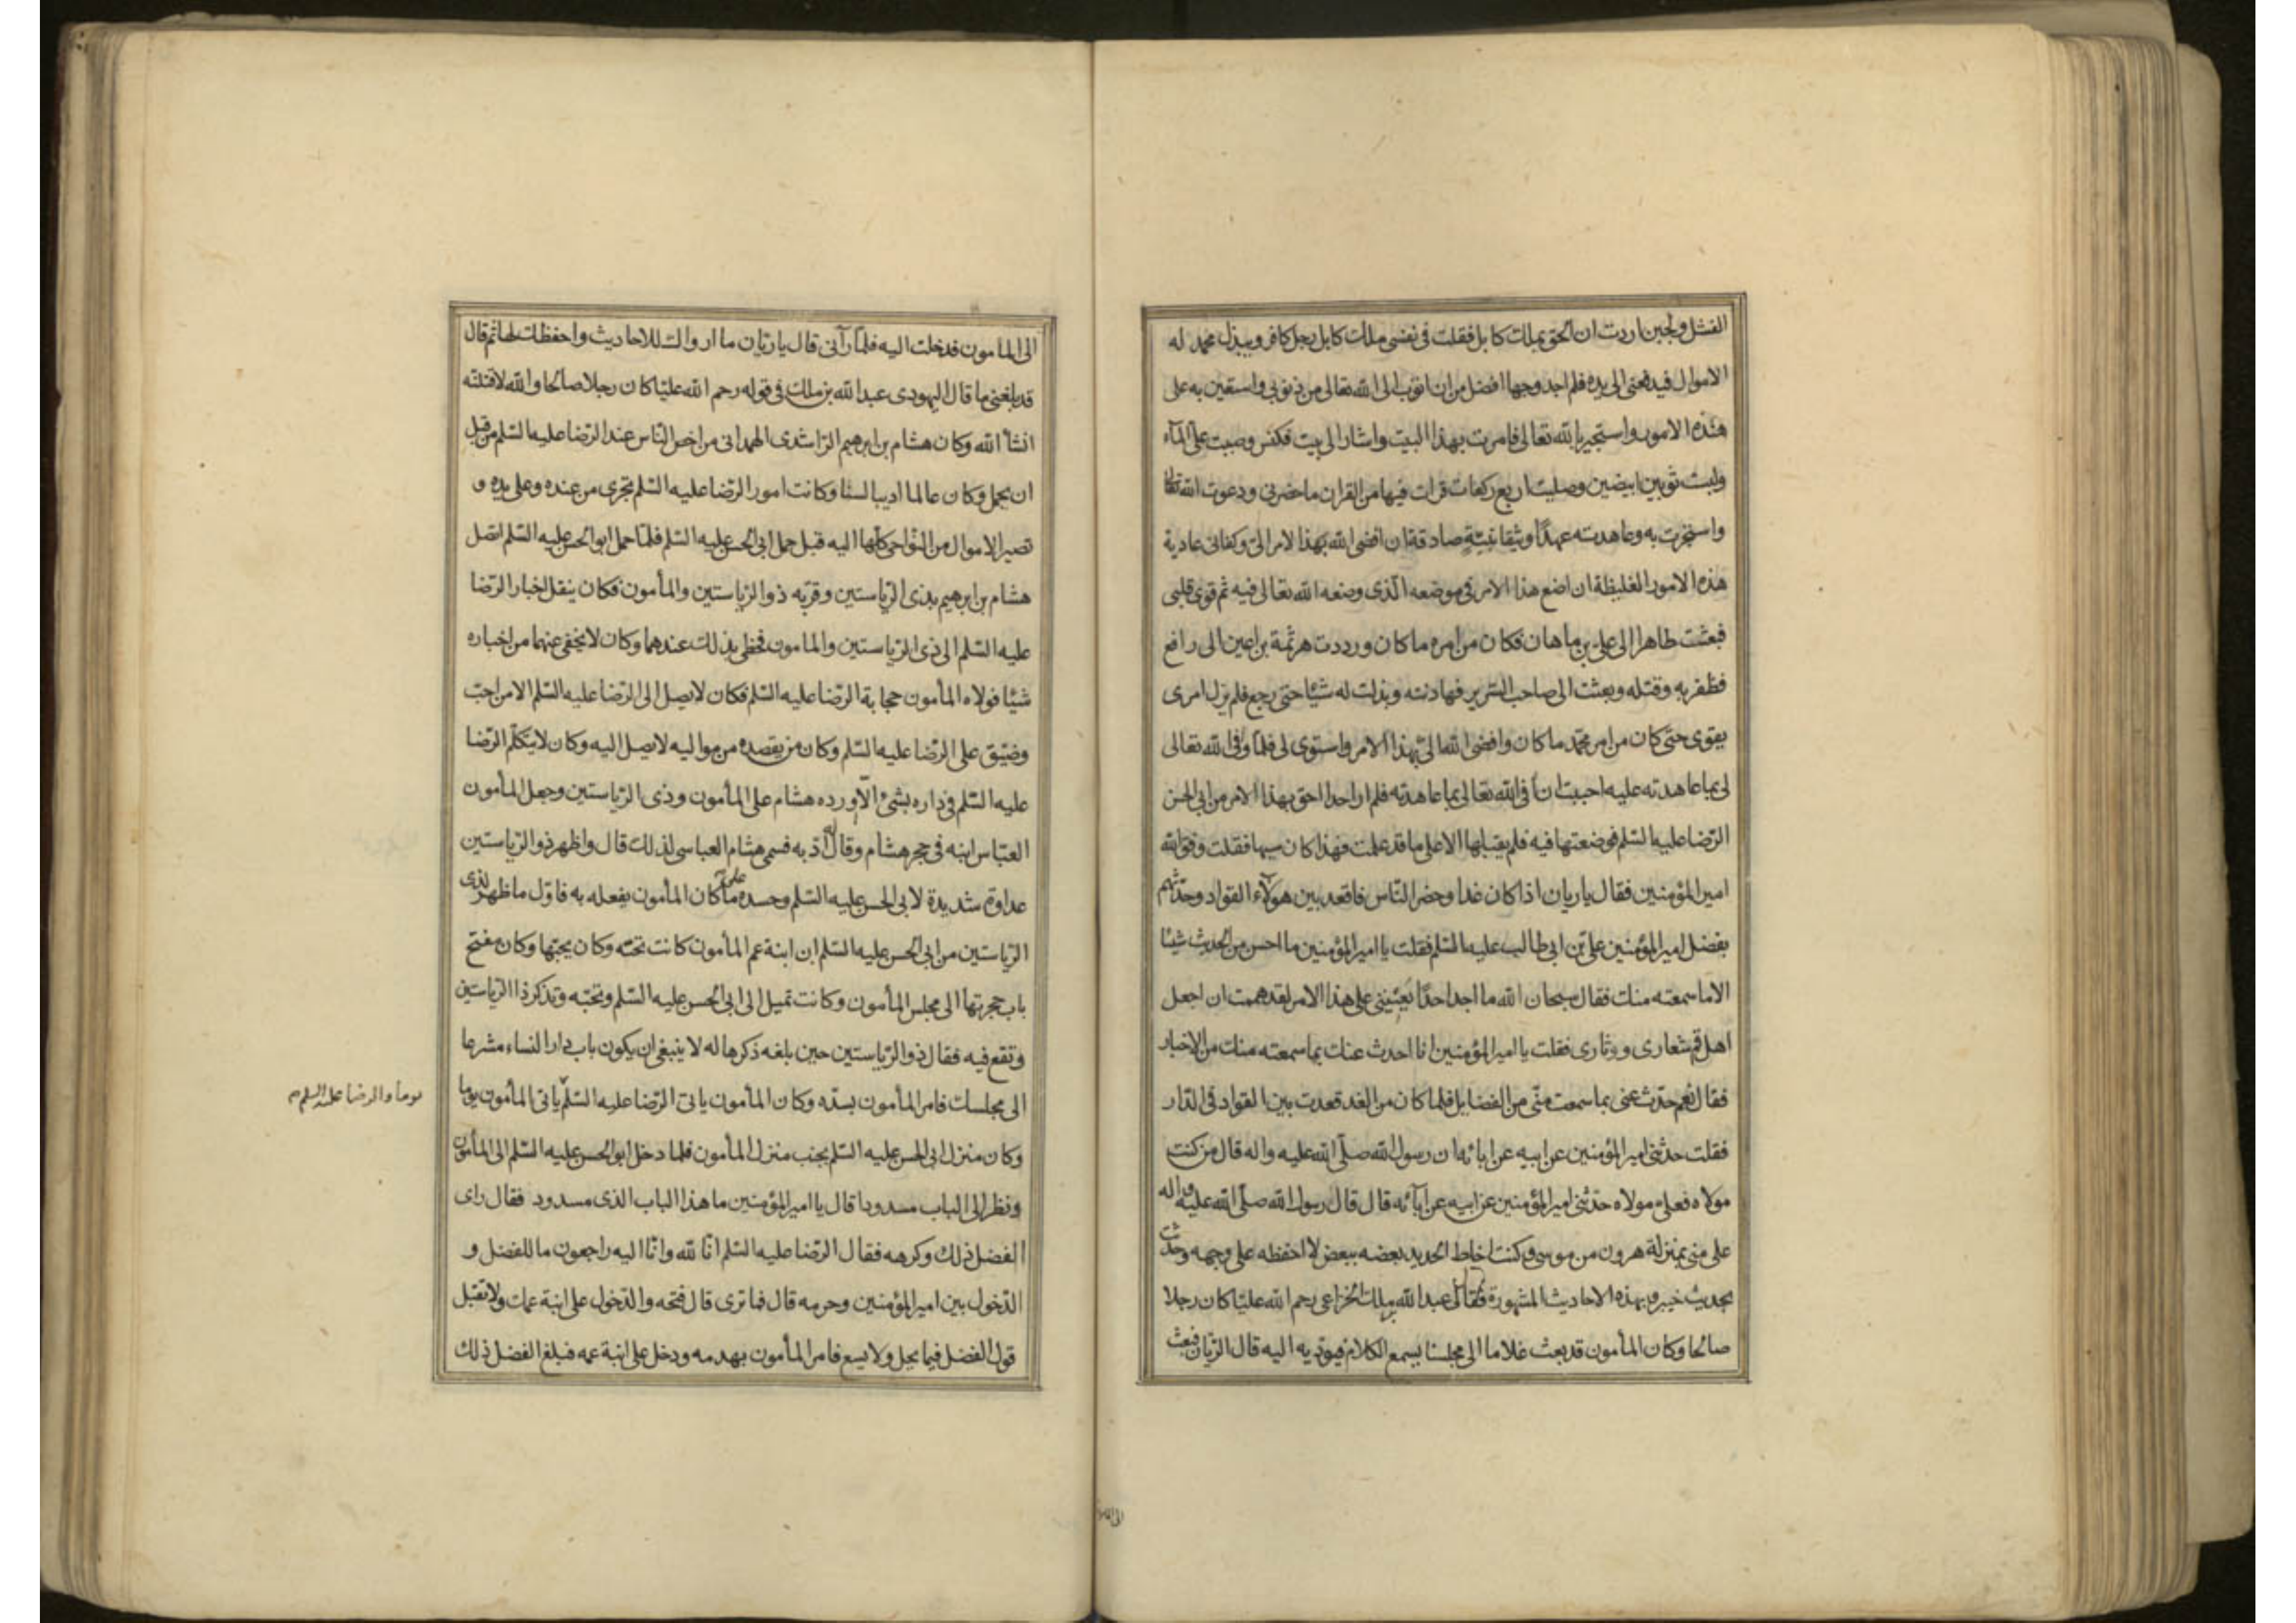 الفشل ولجبن اردت ان الحق بملك كابل فقلت فى نفسى ملك كابل رجل كافر ويبذل محمد له
الاموال فيدفعنى الى يده فلم اجد وجها افضل من ان اتوب الى الله تعالى من ذنوبى واستعين به على
هذه الامور واستجير بالله تعالى فامرت بهذا البيت واشار الى بيت فكنس وصببت على المآء
ولبست ثوبين ابيضين وصليت اربع ركعات قرات فيها من القران ما حضرنى ودعوت الله تعالى
واستجرت به وعاهدته عهدًا وثيقا بنيّةٍ صادقة ان افضى الله بهذا الامر الىّ وكفانى عادية
هذه الامور الغليظة ان اضع هذا الامر فى موضعه الّذى وضعه الله تعالى فيه ثم قوى قلبى
فبعثت طاهرا الى على بن ماهان فكان من امره ما كان ورددت هرثمة بن اعين الى رافع
فظفر به وقتله وبعثت الى صاحب السّرير فهادنته وبذلت له شيئا حتى رجع فلم يزل امرى
يقوى حتى كان من امر محمّد ما كان وافضى الله الىّ بهذا الامر واستوى لى فلمّا وافى الله تعالى
لى بما عاهدته عليه احببت ان افى الله تعالى بما عاهدته فلم ار احدا احق بهذا الامر من ابى الحسن
الرّضا عليه السّلم فوضعتها فيه فلم يقبلها الا على ما قد علمت فهذا كان سببها فقلت وفق الله
امير المؤمنين فقال يا ريان اذا كان غدا وحضر النّاس فاقعد بين هولآء القواد وحدّثهم
بفضل امير المؤمنين علىّ بن ابى طالب عليه السّلم فقلت يا امير المؤمنين ما احسن من الحديث شيئا
الا ما سمعته منك فقال سبحان الله ما اجد احدًا يعيننى على هذا الامر لقد هممت ان اجعل
اهل قم شعارى ودثارى فقلت يا امير المؤمنين انا احدث عنك بما سمعته منك من الاخبار
فقال نعم حدّث عنى بما سمعت منّى من الفضايل فلما كان من الغد قعدت بين القواد فى الدّار
فقلت حدثنى امير المؤمنين عن ابيه عن ابائه ان رسول الله صلّى الله عليه واله قال من كنت
مولاه فعلىّ مولاه حدّثنى امير المؤمنين عن ابيه عن آبائه قال قال رسول الله صلّى الله عليه واله
على منى بمنزلة هرون من موسى وكنت اخلط الحديث بعضه ببعض لا احفظه على وجهه وحدثت
بحديث خيبر وبهذه الاحاديث المشهورة فقال لى عبد الله بن ملك الخزاعى رحم الله عليّا كان رجلا
صالحا وكان المأمون قد بعث غلاما الى مجلسنا يسمع الكلام فيؤديه اليه قال الرّيان فبعث
الى المامون
الى المأمون فدخلت اليه فلمّا رآنى قال يا ريّان ما ارواك للاحاديث واحفظك لها ثم قال
قد بلغنى ما قال اليهودى عبد الله بن ملك فى قوله رحم الله عليّا كان رجلا صالحا والله لاقتلنّه
انشأ الله وكان هشام بن ابرهيم الرّاشدى الهمدانى من اخص النّاس عند الرّضا عليه السّلم من قبل
ان يحمل وكان عالما اديبا لسنا وكانت امور الرّضا عليه السّلم تجرى من عنده وعلى يده و
تصير الاموال من النّواحى كلّها اليه قبل حمل ابى الحسن عليه السّلم فلمّا حمل ابو الحسن عليه السّلم اتصل
هشام بن ابرهيم بذى الرّياستين وقربّه ذو الرّياستين والمأمون فكان ينقل اخبار الرّضا
عليه السّلم الى ذى الرّياستين والمامون فحظى بذلك عندهما وكان لا يخفى عنهما من اخباره
شيئا فولاه المأمون حجابة الرّضا عليه السّلم فكان لا يصل الى الرّضا عليه السّلم الا من احبّ
وضيّق على الرّضا عليه السّلم وكان من يقصده من مواليه لا يصل اليه وكان لا يتكلّم الرّضا
عليه السّلم فى داره بشىء الّا اورده هشام على المأمون وذى الرّياستين وجعل المأمون
العبّاس ابنه فى حجر هشام وقال له ادّبه فسمى هشام العباسى لذلك قال واظهر ذو الرّياستين
عداوة شديدة لابى الحسن عليه السّلم وحسده على ما كان المأمون يفعله به فاوّل ما ظهر لذى
الرّياستين من ابى الحسن عليه السّلم ان ابنة عم المأمون كانت تحبّه وكان يحبّها وكان مفتح
باب حجرتها الى مجلس المأمون وكانت تميل الى ابى الحسن عليه السّلم وتحبّه وتذكر ذا الرّياستين
وتقع فيه فقال ذو الرّياستين حين بلغه ذكرها له لا ينبغى ان يكون باب دار النساء مشرعا
الى مجلسك فامر المأمون بسدّه وكان المأمون ياتى الرّضا عليه السّلم ياتى المأمون يوما
يوما والرضا عليه السلم م
وكان منزل ابى الحسن عليه السّلم بجنب منزل المأمون فلما دخل ابو الحسن عليه السّلم الى المأمون
ونظر الى الباب مسدودا قال يا امير المؤمنين ما هذا الباب الذى مسدود فقال راى
الفضل ذلك وكرهه فقال الرّضا عليه السّلم انّا لله وانّا اليه راجعون ما للفضل و
الدّخول بين امير المؤمنين وحرمه قال فما ترى قال فتحه والدّخول على ابنة عمك ولا تقبل
قول الفضل فيما يحل ولا يسع فامر المأمون بهدمه ودخل على ابنة عمه فبلغ الفضل ذلك